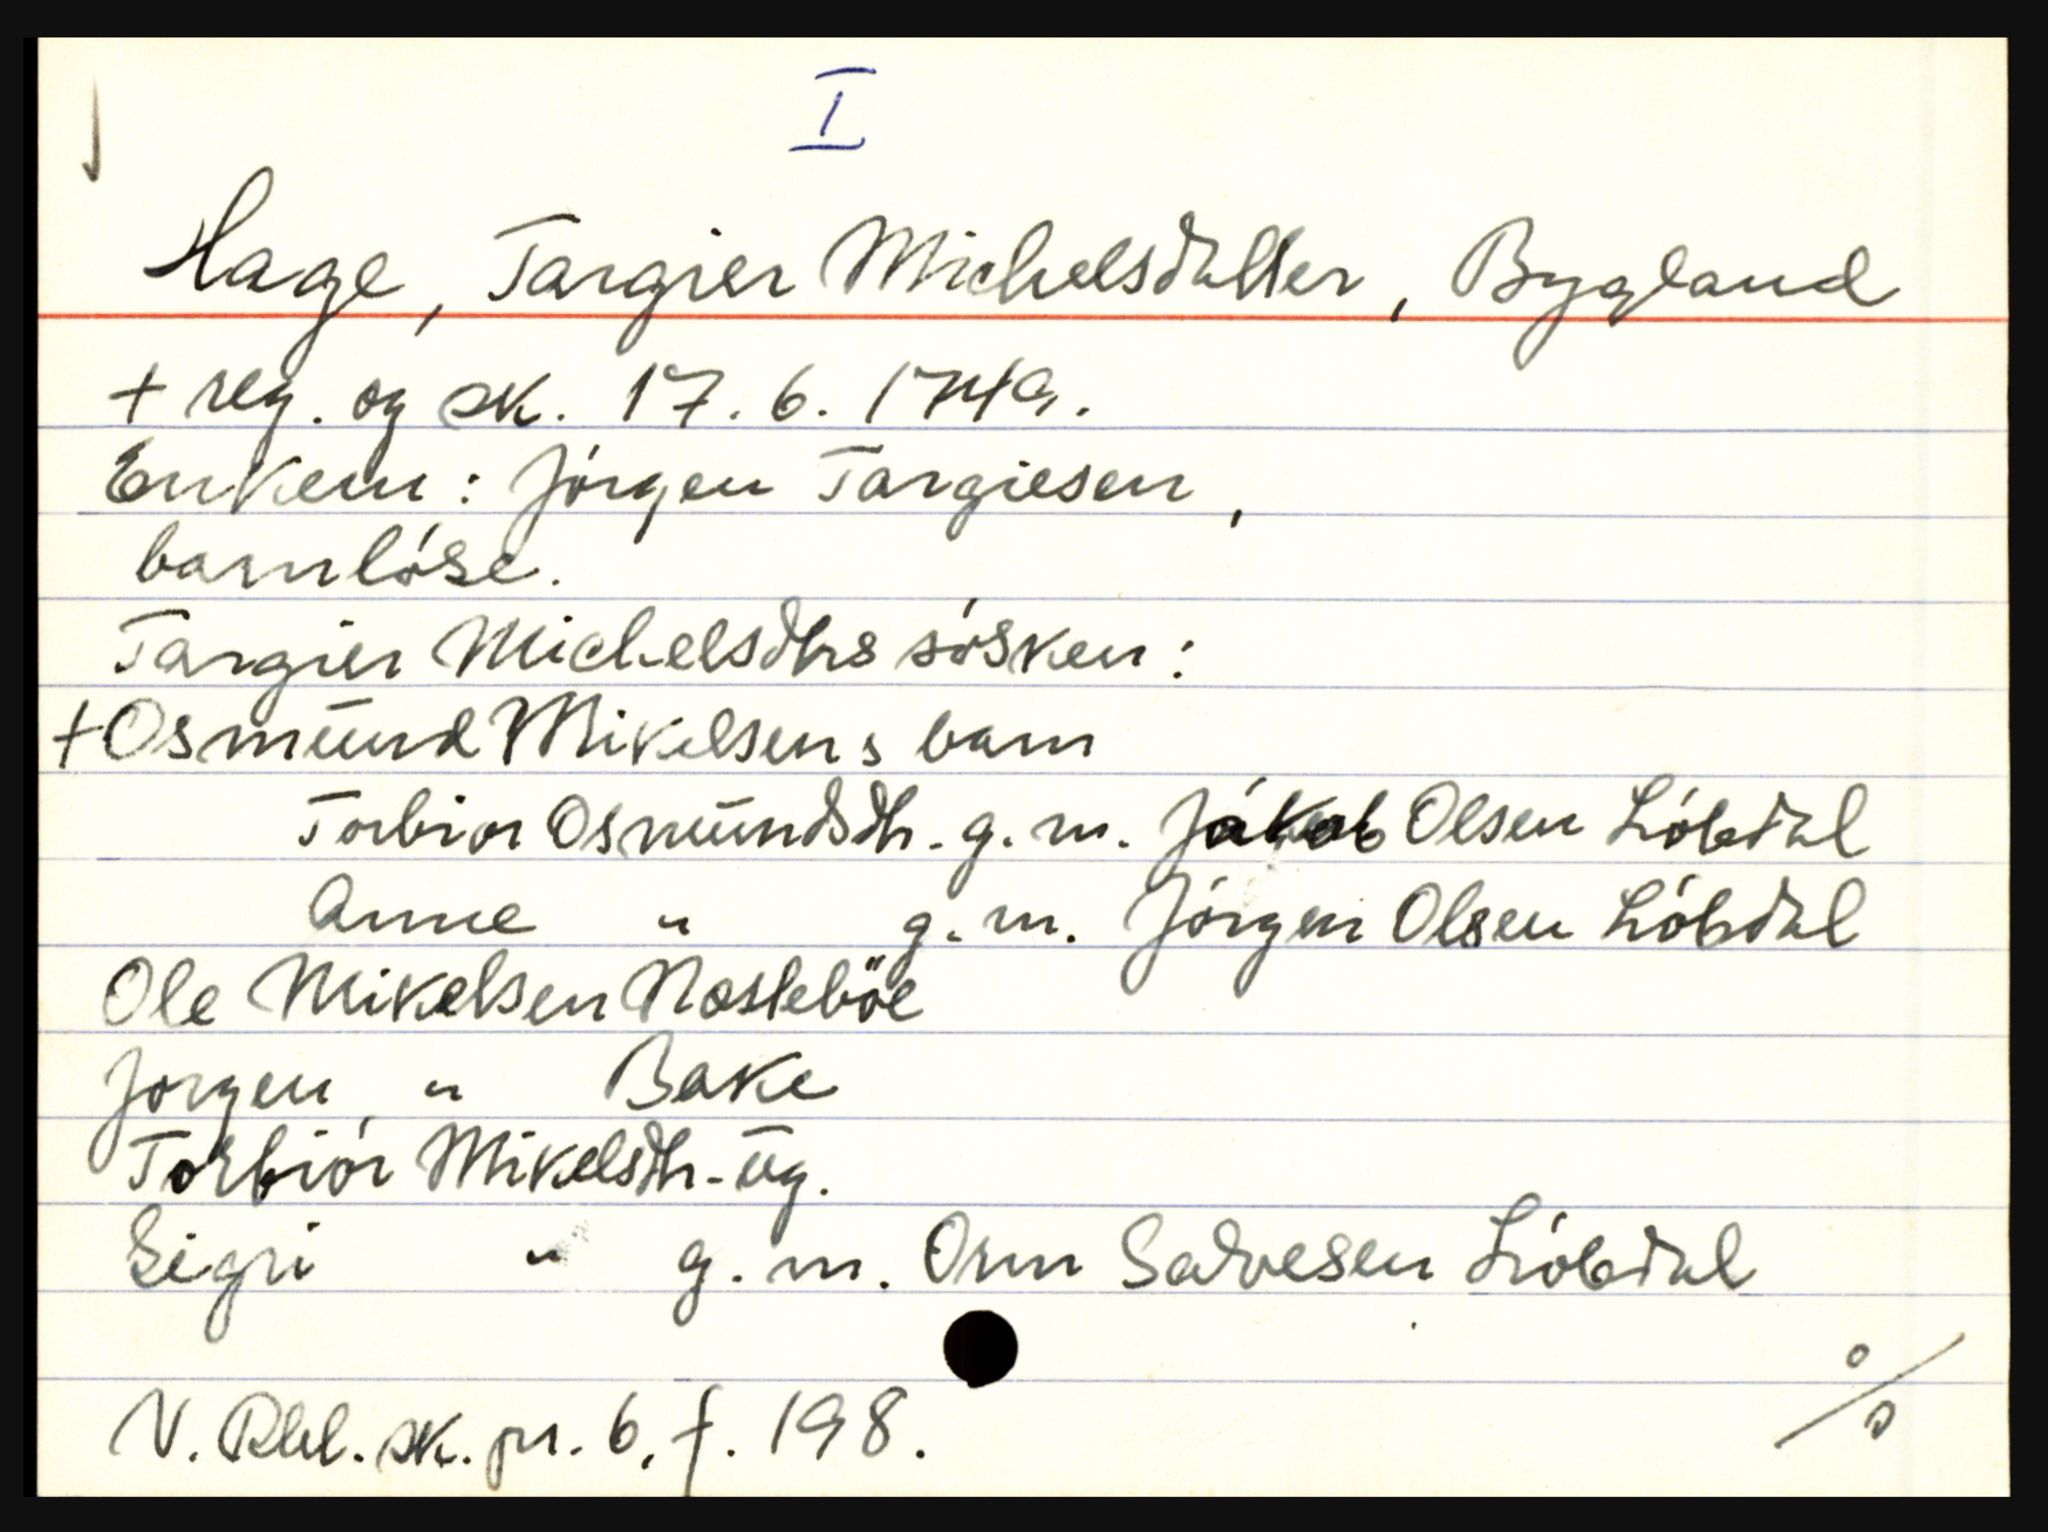 I
Hage, Targier Michelsdatter, Bygland
+ reg. og sk. 17. 6. 1749.
Enkem: Jórgen Targiesen,
barnlóse.
Targier Michelsdtrs sósken:
+ Osmund Mikelsens barn
Torbior Osmundsdtr. g. m. Jákob Olsen Lióbdal
Anne " g. m. Jórgen Olsen Lióbdal
Ole Mikelsen Nasleböe
Jorgen " Bake
Torbiór Mikelsdtr. ug.
Sigri " g. m. Orm Salvesen Lióbdal
V. Rbl. sk. pr. 6, f. 198.